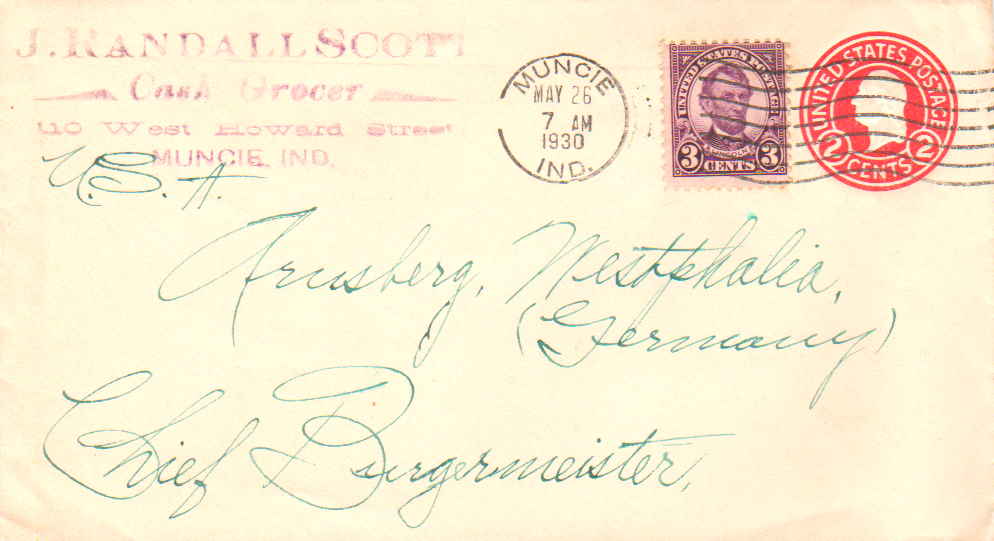 J. RANDALL SCOTT
Cash Grocer
110 West Howard Street
MUNCIE, IND.
U.S.A.
MUNCIE
MAY 26
7 AM
1930
IND.
UNITED STATES POSTAGE
LINCOLN
3 CENTS 3
UNITED STATES POSTAGE
2 CENTS 2
Arnsberg, Westphalia,
(Germany)
Chief Burgermeister,